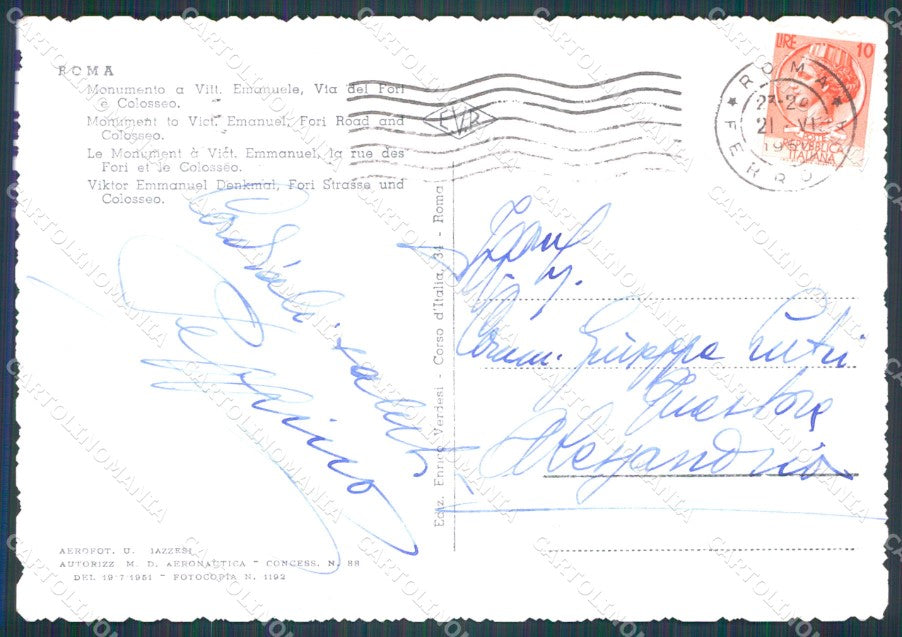 ROMA
Monumento a Vitt. Emanuele, Via dei Fori
e Colosseo.
Monument to Vict. Emanuel, Fori Road and
Colosseo.
Le Monument à Vict. Emmanuel, la rue des
Fori et le Colosseo.
Viktor Emmanuel Denkmal, Fori Strasse und
Colosseo.
Cordiali saluti
Peppino
AEROFOT. U. IAZZESI
AUTORIZZ. M. D. AERONAUTICA - CONCESS. N. 88
DEL 19-7-1951 - FOTOCOPIA N. 1192
Ediz. Enrico Verdesi - Corso d'Italia, 34 - Roma
E.V.R.
LIRE 10
POSTE
REPVBBLICA
ITALIANA
ROMA
21 VI
FERRO
Comm. Giuseppe
Questore
Alessandria
CARTOLINOMANIA